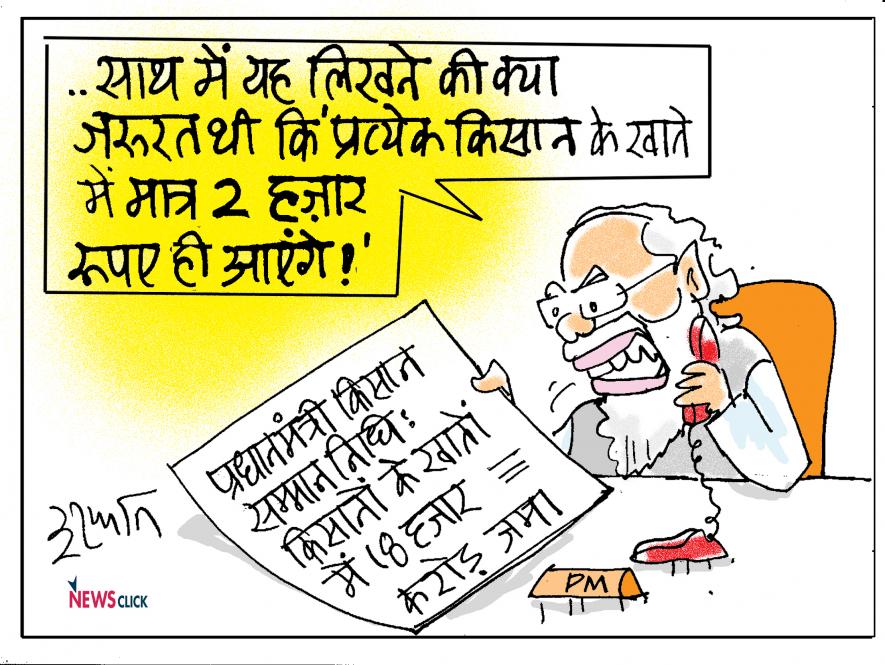 ..साथ में यह लिखने की क्या
जरूरत थी कि 'प्रत्येक किसान के खाते
में मात्र 2 हज़ार
रूपए ही आएंगे!'
प्रधानमंत्री किसान
सम्मान निधि:
किसानों के खातों
में 18 हजार
करोड़ जमा
PM
इरफान
NEWSCLICK